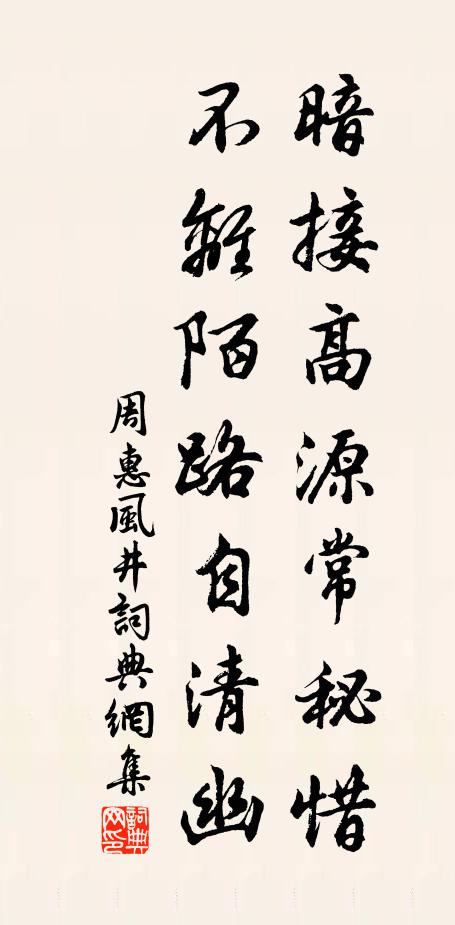 暗接高源常秘惜
不離陌路自清幽
周惠風井詞典網集
詞典網印